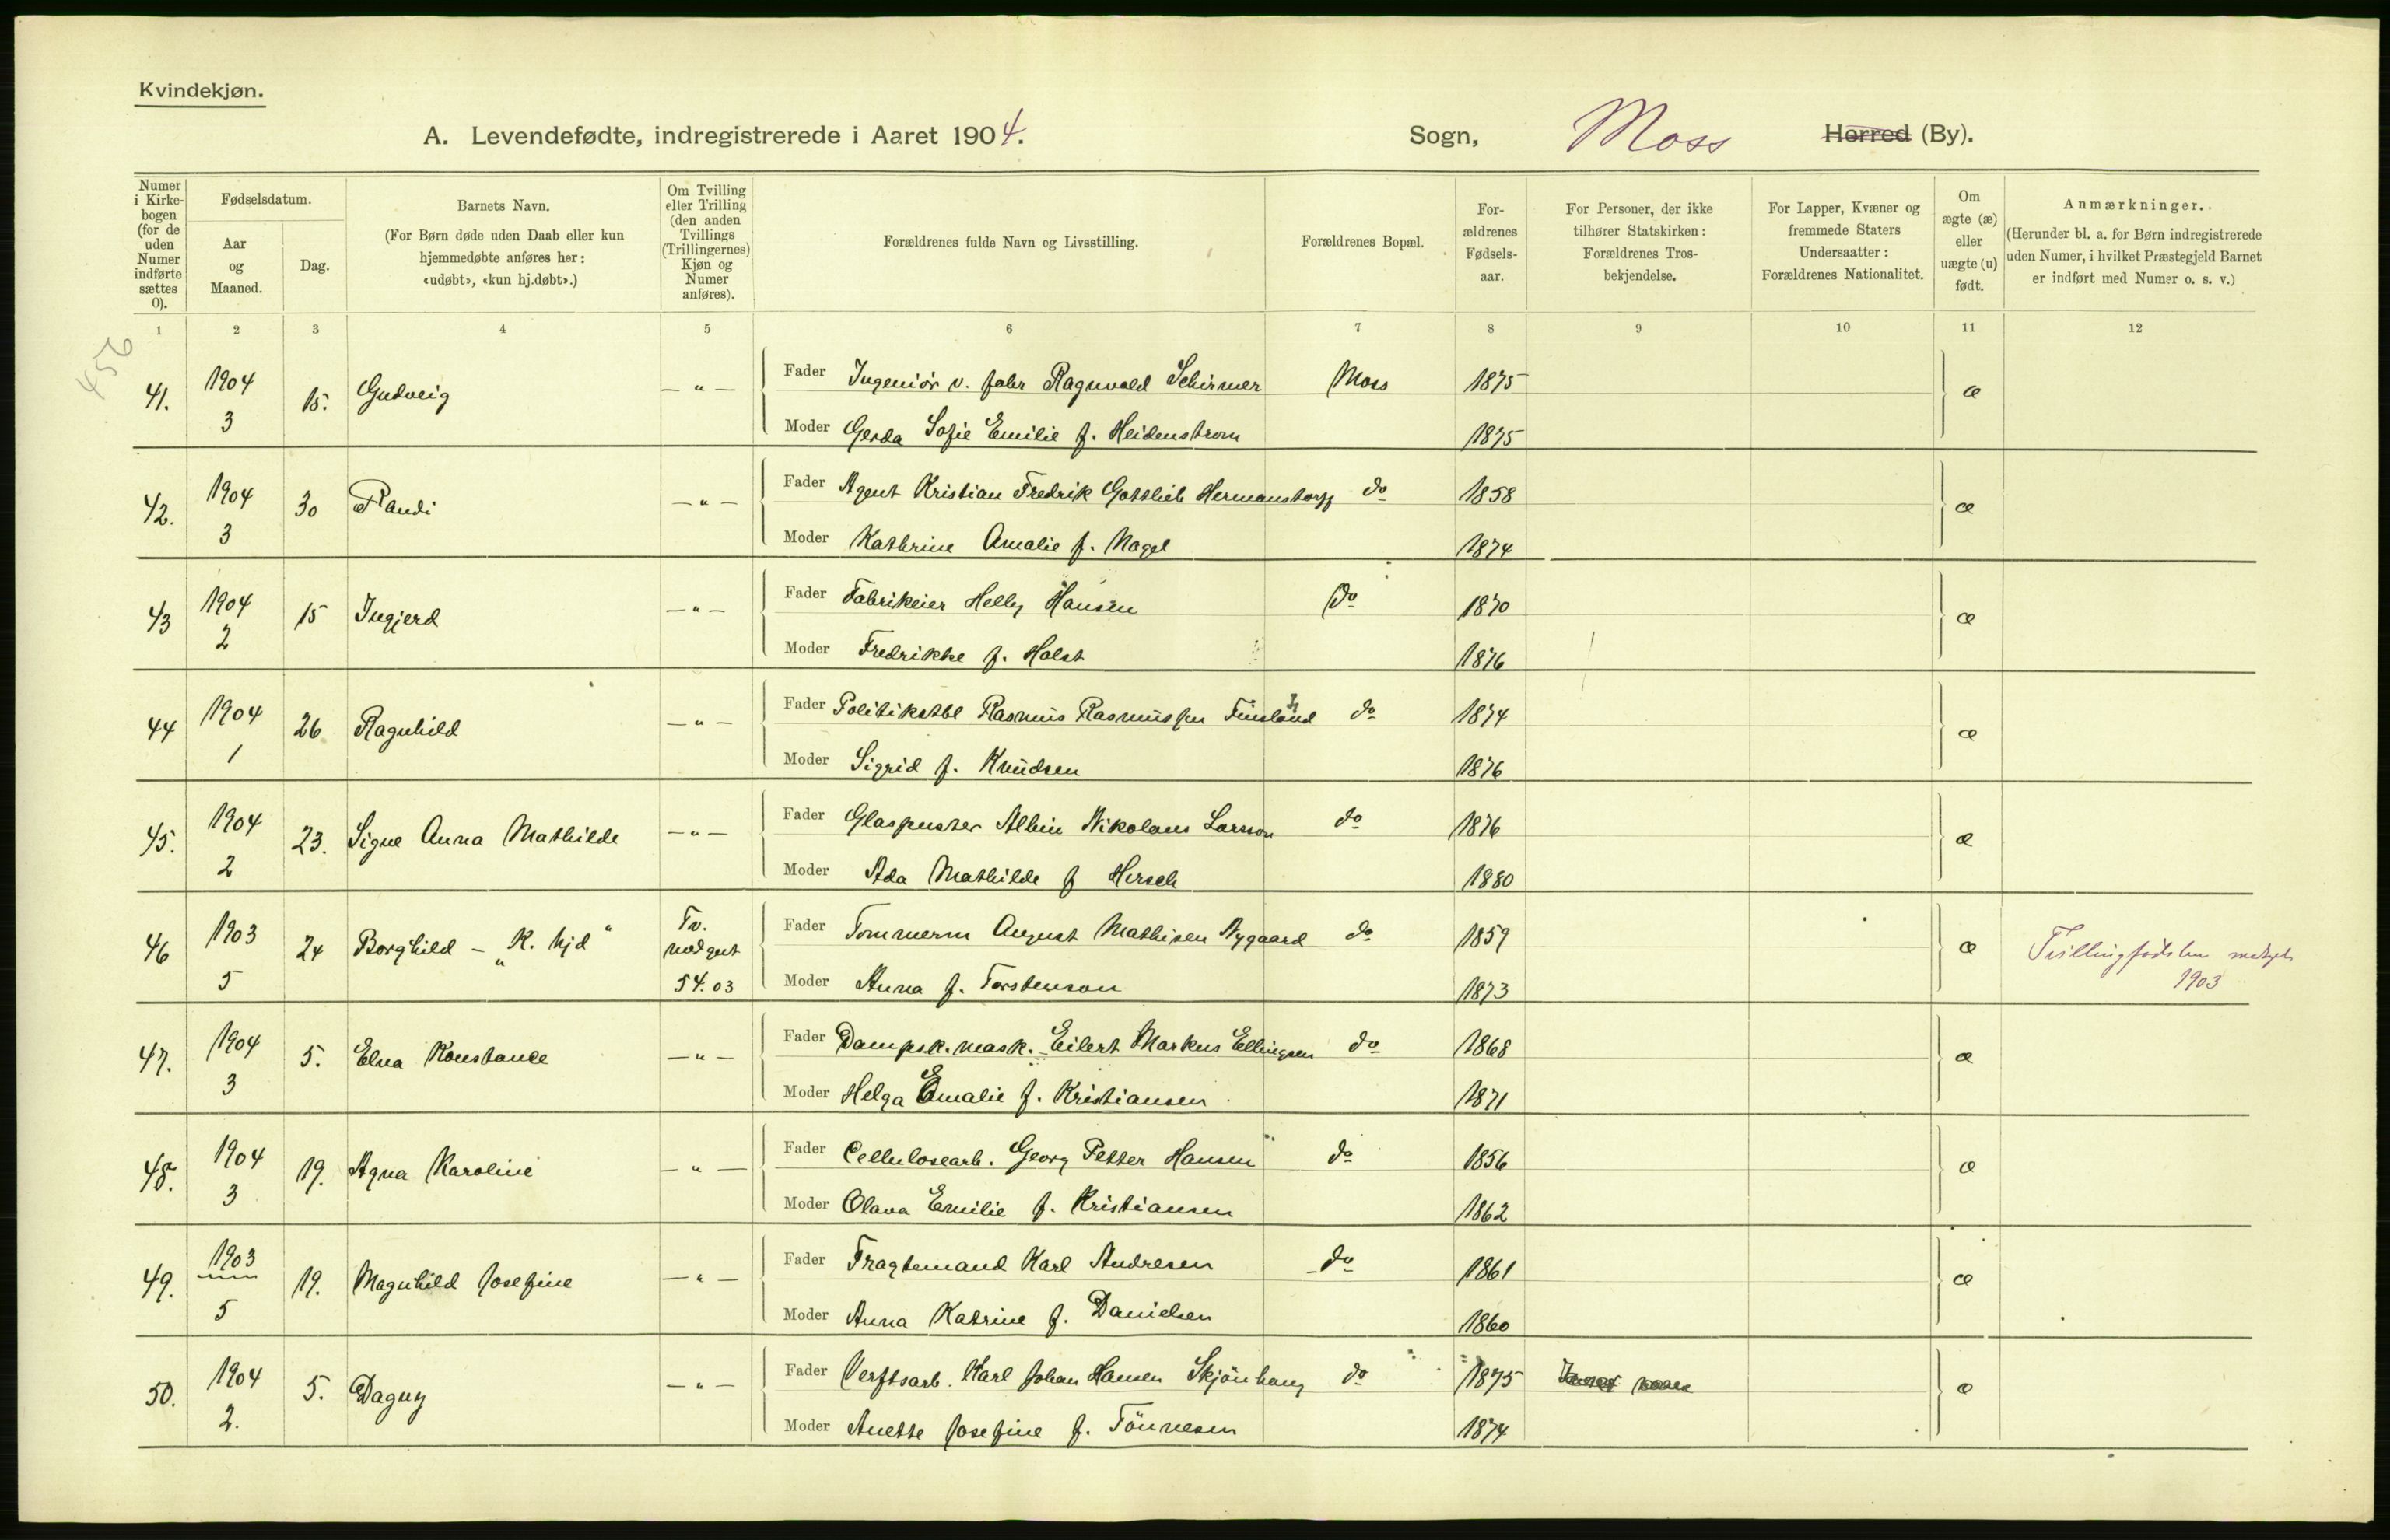 Kvindekjøn.
A. Levendefødte, indregistrerede i Aaret 1904. Sogn, Moss Herred (By).
Numer i Kirkebogen (for de uden Numer indførte sættes 0).
Fødselsdatum.
Aar og Maaned.
Dag.
Barnets Navn.
(For Børn døde uden Daab eller kun hjemmedøbte anføres her: «udøbt», «kun hj.døbt».)
Om Tvilling eller Trilling (den anden Tvillings (Trillingernes) Kjøn og Numer anføres).
Forældrenes fulde Navn og Livsstilling.
Forældrenes Bopæl.
Forældrenes Fødselsaar.
For Personer, der ikke tilhører Statskirken: Forældrenes Trosbekjendelse.
For Lapper, Kvæner og fremmede Staters Undersaatter: Forældrenes Nationalitet.
Om ægte (æ) eller uægte (u) født.
Anmærkninger.
(Herunder bl. a. for Børn indregistrerede uden Numer, i hvilket Præstegjeld Barnet er indført med Numer o. s. v.)
1 2 3 4 5 6 7 8 9 10 11 12
456
41. 1904 3 15. Gudveig — " — Fader Ingeniör v. Jahr Ragnvald Schirmer Moss 1875 æ
Moder Gerda Sofie Emilie f. Heidenstrom 1875
42. 1904 3 30 Randi — " — Fader Agent Kristian Fredrik Gottlieb Hermanstorff do 1858 æ
Moder Kathrine Amalie f. Nagel 1874
43 1904 2 15 Ingjerd — " — Fader Fabrikeier Helly Hansen do 1870 æ
Moder Fredrikke f. Holst 1876
44 1904 1 26 Ragnhild — " — Fader Politikstbl Rasmus Rasmussen Finsland do 1874 æ
Moder Sigrid f. Knudsen 1876
45. 1904 2 23. Signe Anna Mathilde — " — Fader Glaspuster Albin Nikolaus Larsson do 1876 æ
Moder Ada Mathilde f Hersch 1880
46 1903 5 24 Borghild - "K. hjd" Tv. med gut 54.03 Fader Tommerm August Mathisen Nygaard do 1859 æ Tvillingfødslen medtat 1903
Moder Anna f. Torstenson 1873
47. 1904 3 5. Elna Konstance — " — Fader Dampsk. mask. Eilert Markus Ellingsen do 1868 æ
Moder Helga Emalie f. Kristiansen 1871
48. 1904 3 19. Agna Karoline — " — Fader Cellulosearb. Georg Petter Hansen do 1856 æ
Moder Olava Emilie f. Kristiansen 1862
49. 1903 5 19. Magnhild Josefine — " — Fader Fragtemand Karl Andresen do 1861 æ
Moder Anna Katrine f. Danielsen 1860
50. 1904 2. 5. Dagny — " — Fader Verftsarb. Karl Johan Hansen Skjönhaug do 1875 æ
Moder Anette Josefine f. Tönnesen 1874